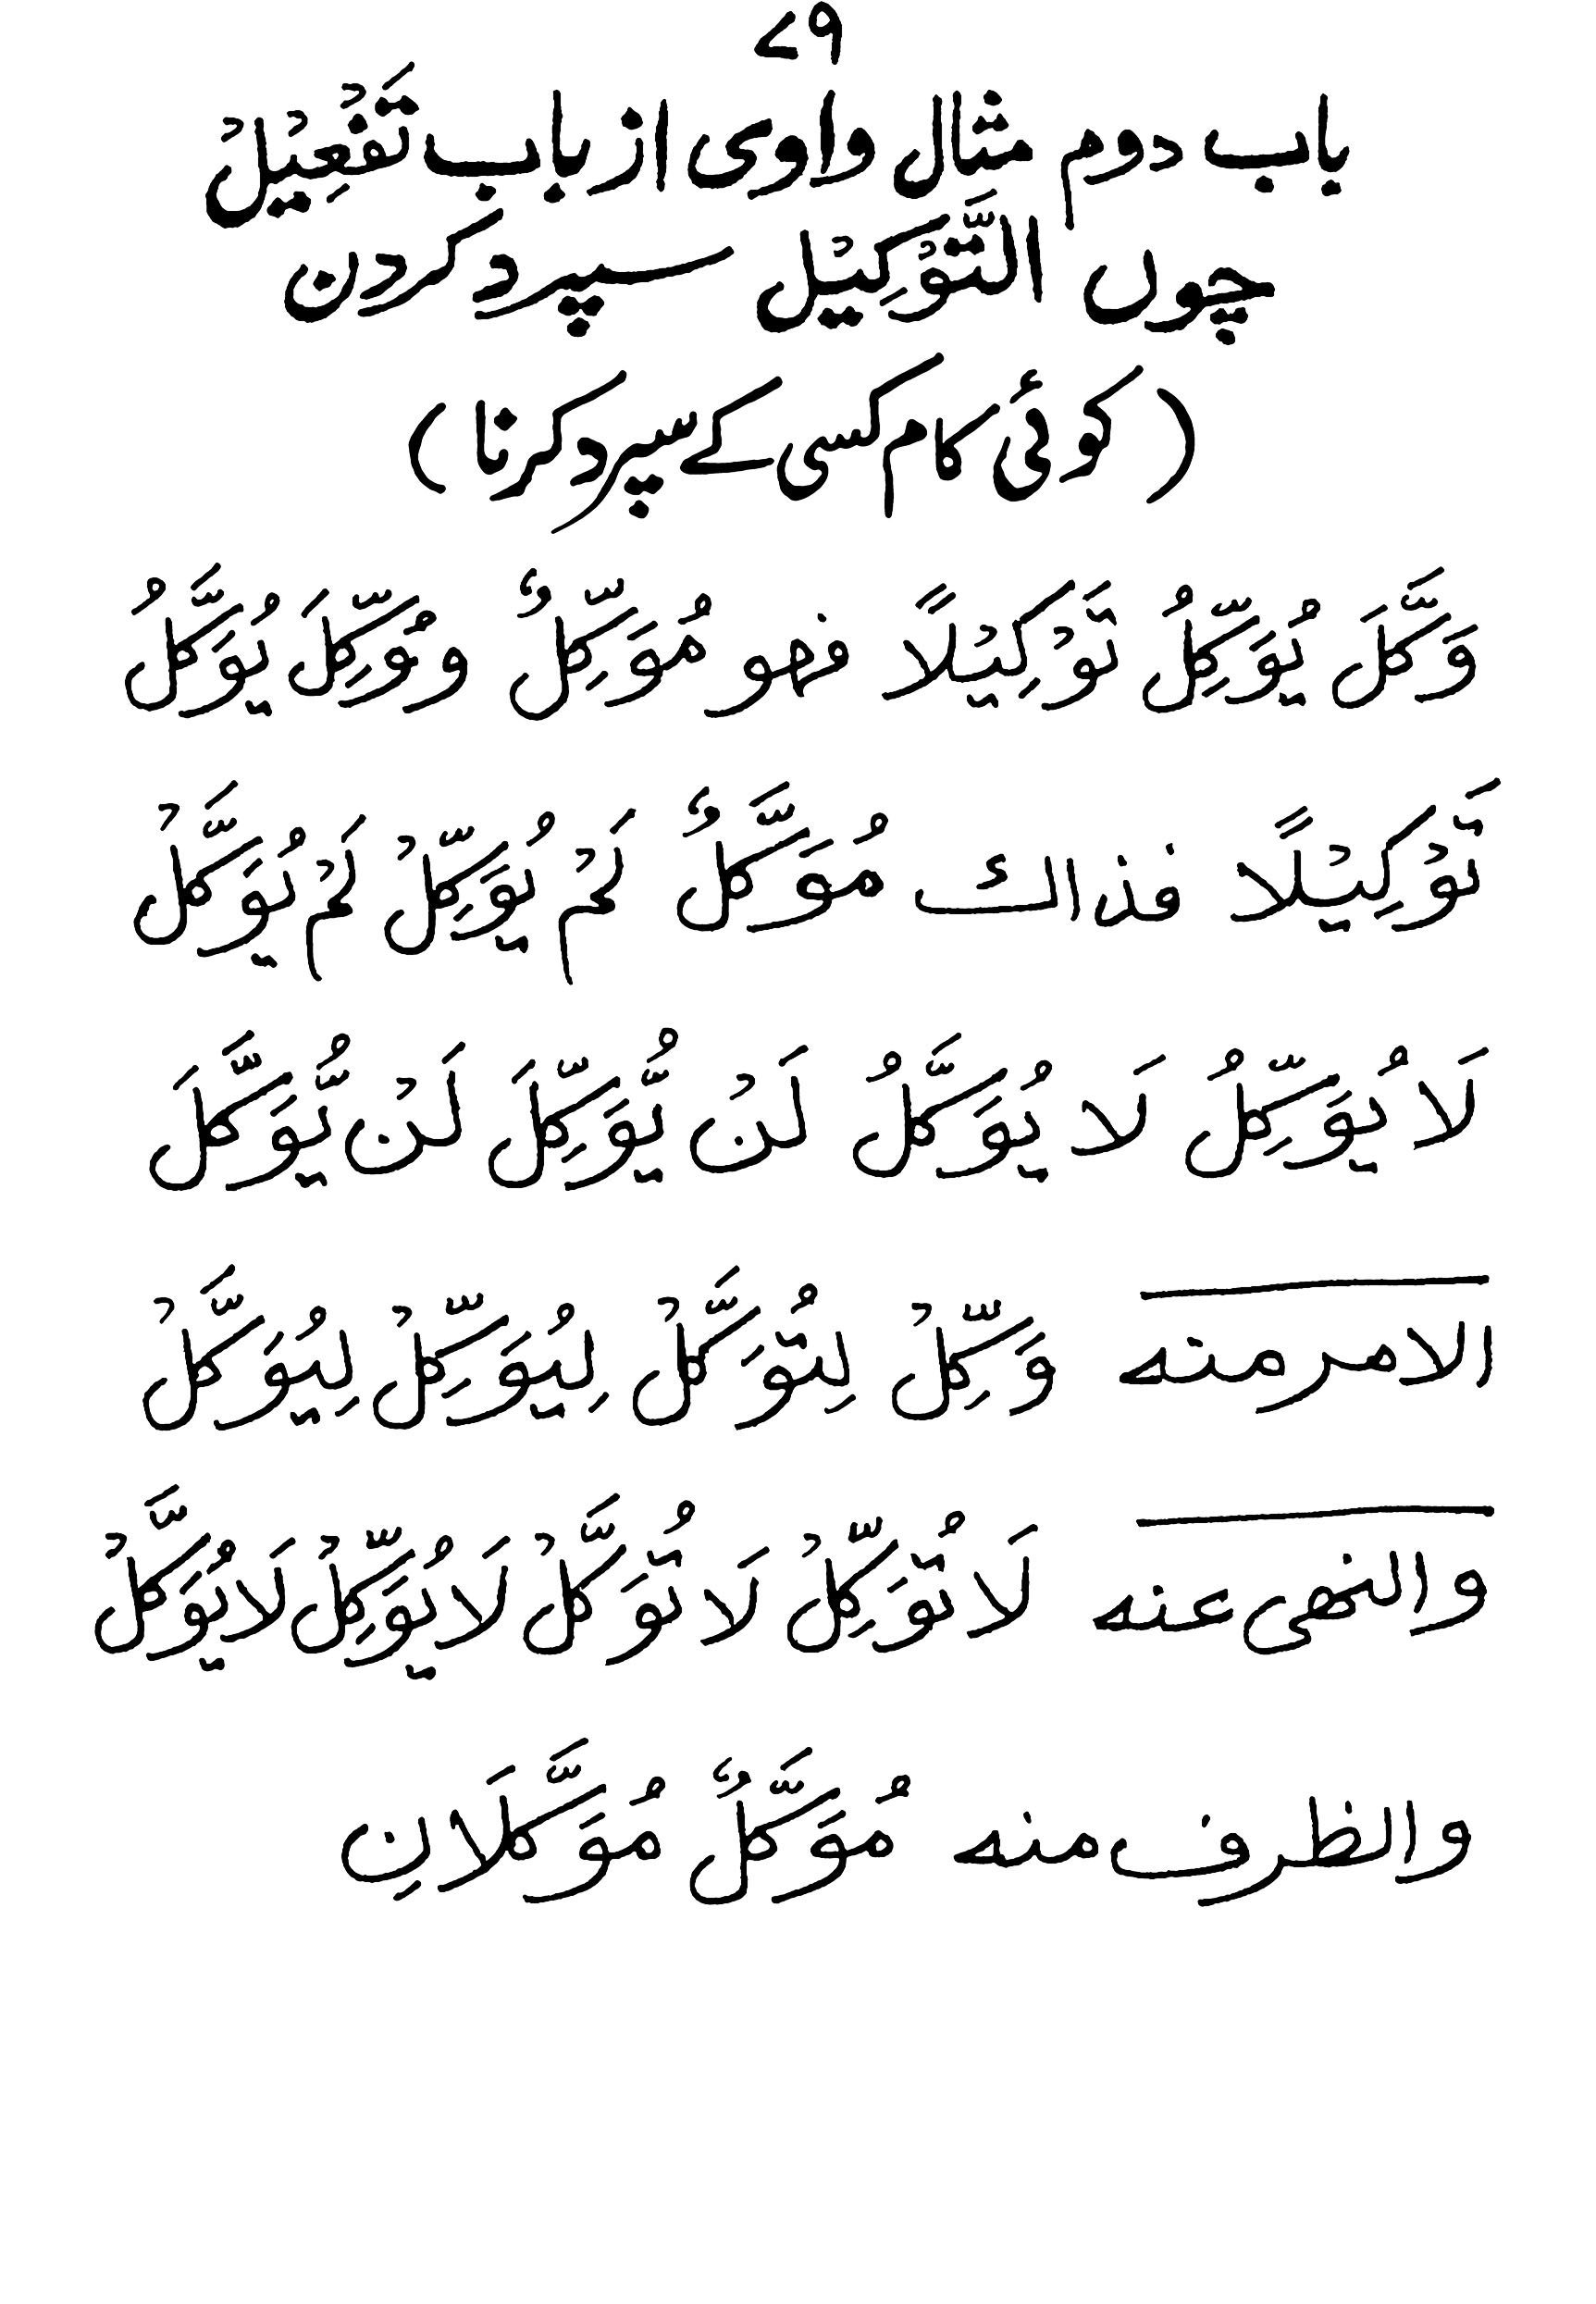 ۷۹
باب دوم مثال واوی از باب تَفْعِیْلْ
چوں التَّوْکِیْل سپرد کردن
( کوئی کام کسی کے سپرد کرنا )
وَكَّلَ يُوَكِّلُ تَوْكِيْلًا فهو مُوَكِّلٌ و وُكِّلَ يُوَكَّلُ
تَوْكِيْلًا فذاك مُوَكَّلٌ لَمْ يُوَكِّلْ لَمْ يُوَكَّلْ
لَا يُوَكِّلُ لَا يُوَكَّلُ لَنْ يُّوَكِّلَ لَنْ يُّوَكَّلَ
الامر منه وَكِّلْ لِتُوَكَّلْ لِيُوَكِّلْ لِيُوَكَّلْ
والنهى عنه لَا تُوَكِّلْ لَا تُوَكَّلْ لَا يُوَكِّلْ لَا يُوَكَّلْ
والظرف منه مُوَكَّلٌ مُوَكَّلَانِ